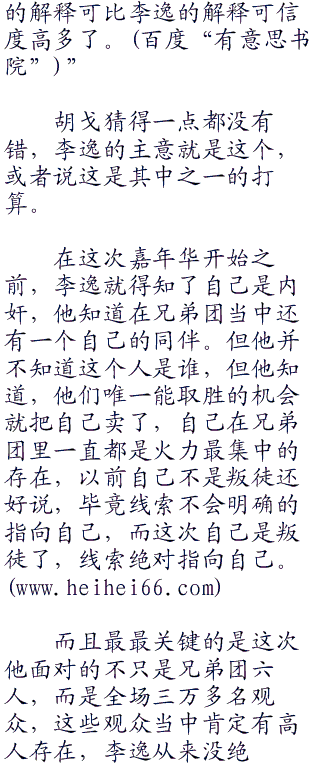 的解释可比李逸的解释可信
度高多了。(百度“有意思书
院”)”
胡戈猜得一点都没有
错，李逸的主意就是这个，
或者说这是其中之一的打
算。
在这次嘉年华开始之
前，李逸就得知了自己是内
奸，他知道在兄弟团当中还
有一个自己的同伴。但他并
不知道这个人是谁，但他知
道，他们唯一能取胜的机会
就把自己卖了，自己在兄弟
团里一直都是火力最集中的
存在，以前自己不是叛徒还
好说，毕竟线索不会明确的
指向自己，而这次自己是叛
徒了，线索绝对指向自己。
(www.heihei66.com)
而且最最关键的是这次
他面对的不只是兄弟团六
人，而是全场三万多名观
众，这些观众当中肯定有高
人存在，李逸从来没绝